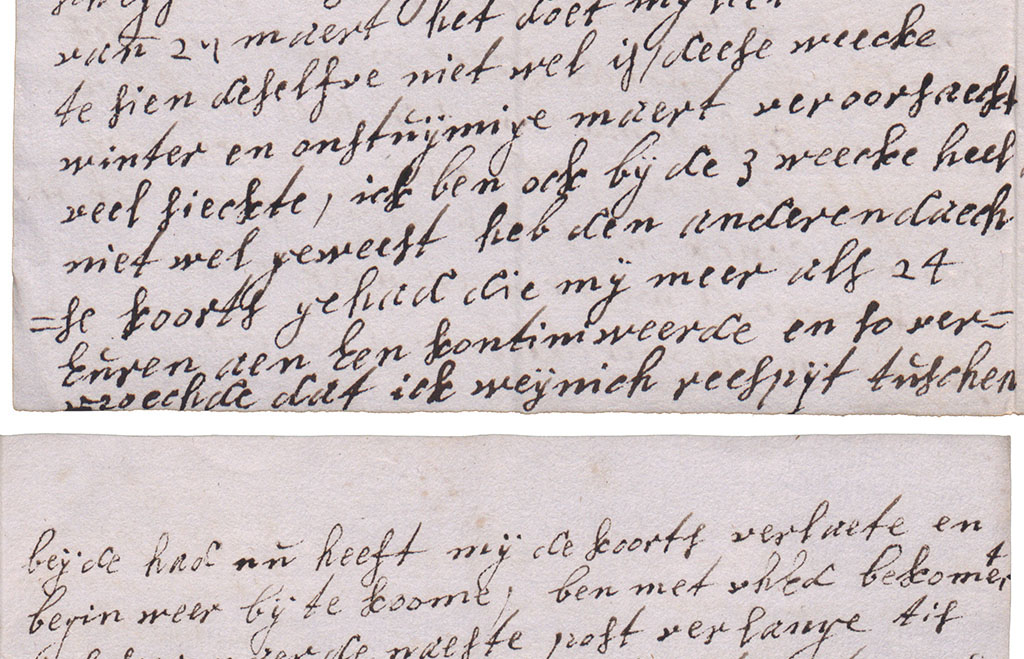 van 24 maert het doet my
te sien deselfve niet wel is, deese weecke
winter en onstuÿmige maert veroorsaeckt
veel sieckte, ick ben ock bÿ de 3 weecke heel
niet wel geweest heb den anderendaech
=se koorts gehad die mÿ meer als 24
Euren aen Een kontiniweerde en so ver=
vroechde dat ick weÿnich reespijt tuschen
beÿde had nu heeft mÿ de koorts verlaete en
begin weer bÿ te koome, ben met UhEd bekomer
de naeste post verlange tis